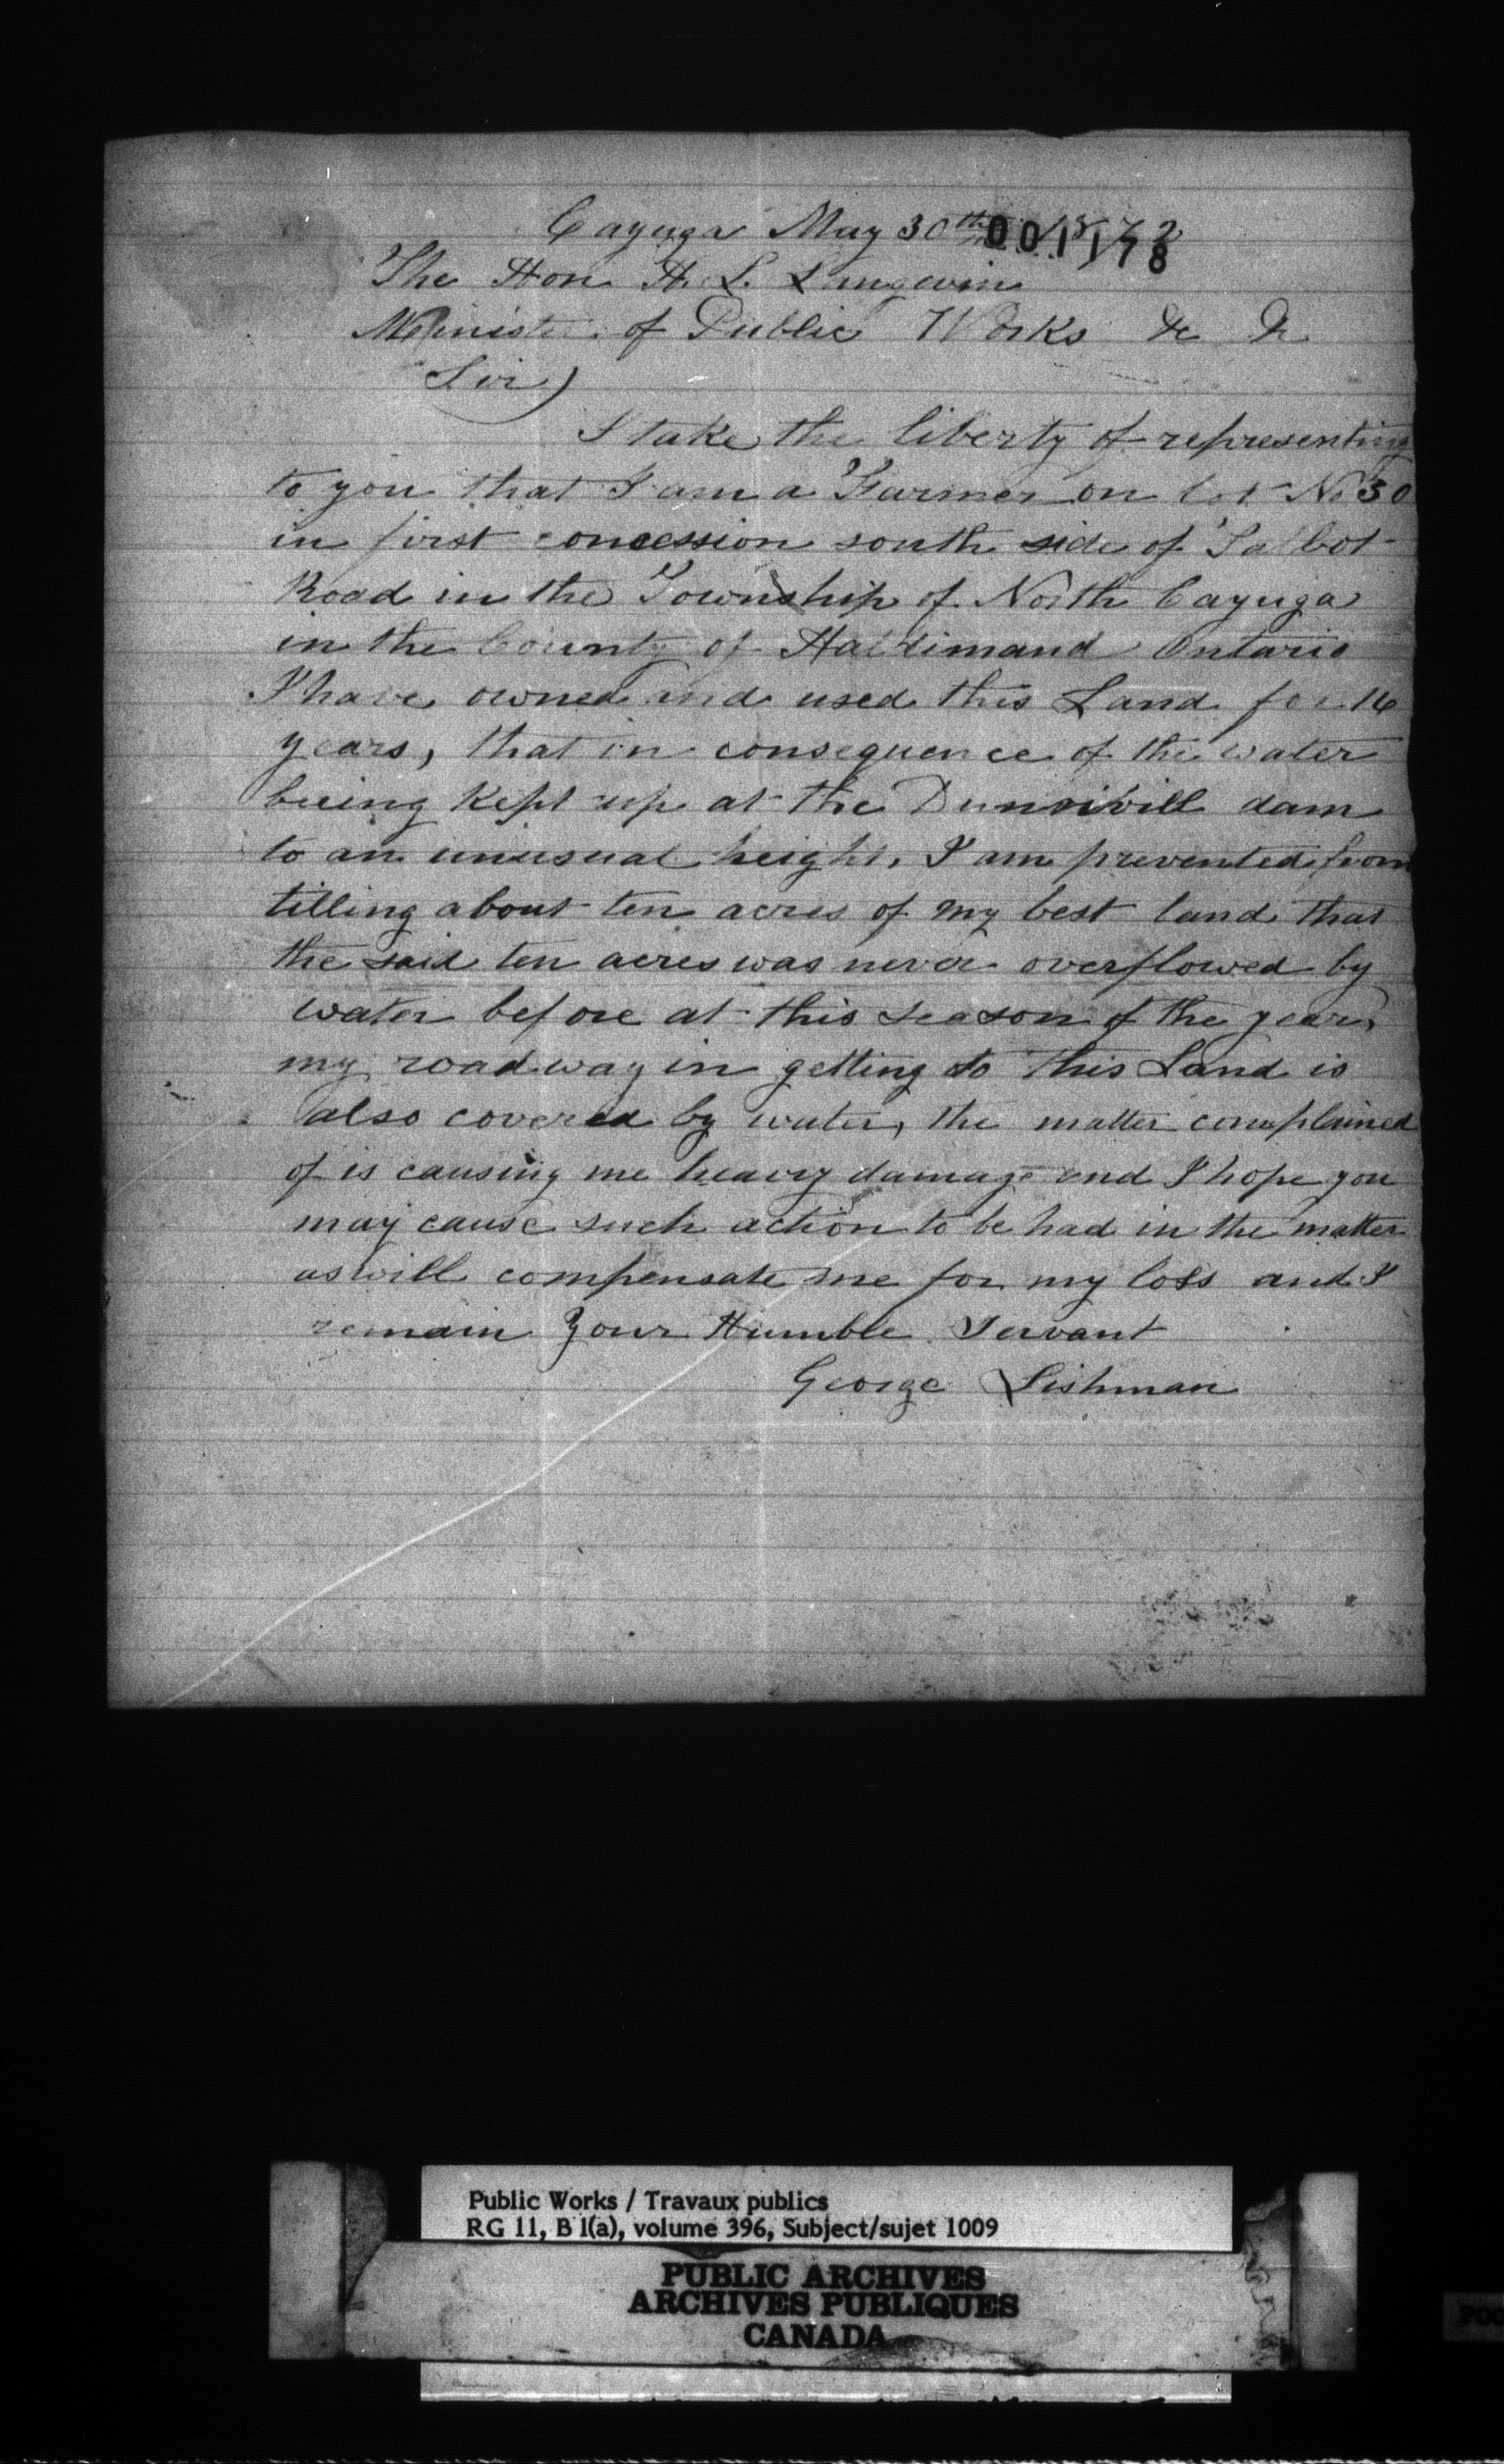 Cayuga May 30th 1872
001178
The Hon H. L. Langevin
Minister of Public Works &c &c
Sir)
I take the liberty of representing
to you that I am a Farmer on lot No 30
in first concession south side of Talbot
Road in the Township of North Cayuga
in the County of Haldimand Ontario
I have owned and used this Land for 16
years, that in consequence of the water
being kept up at the Dunnivill dam
to an unusual height, I am prevented from
tilling about ten acres of my best land that
the said ten acres was never overflowed by
water before at this season of the year,
my roadway in getting to this Land is
also covered by water, the matter complained
of is causing me heavy damage and I hope you
may cause such action to be had in the matter
as will compensate me for my loss and I
remain Your Humble Servant
George Lishman
Public Works / Travaux publics
RG 11, B 1(a), volume 396, Subject/sujet 1009
PUBLIC ARCHIVES
ARCHIVES PUBLIQUES
CANADA